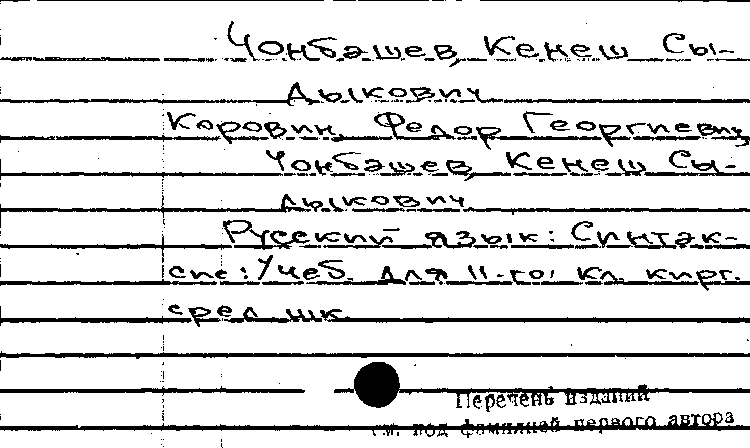 Чонбашев, Кенеш Сы-
дыкович
Коровин, Федор Георгиевич,
Чонбашев, Кенеш Сы-
дыкович
Русский язык: Синтак-
сис: Учеб. для 11-го кл. кирг.
сред. шк.
Перечень изданий
см. под фамилией первого автора